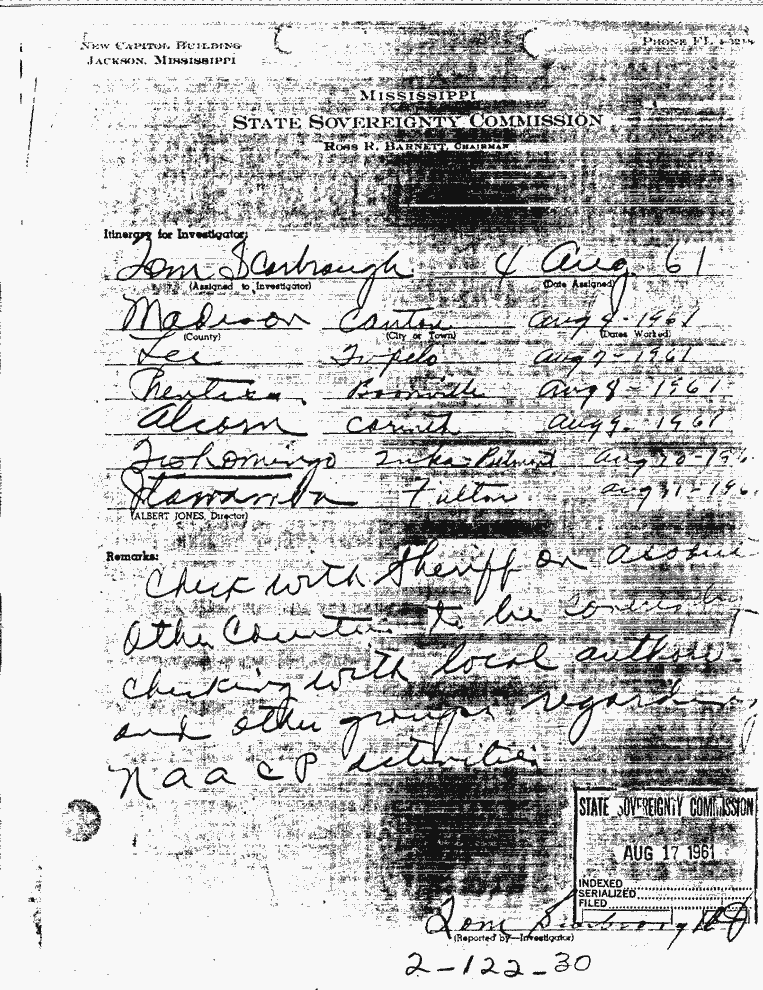 NEW CAPITOL BUILDING
JACKSON, MISSISSIPPI
PHONE FL
MISSISSIPPI
STATE SOVEREIGNTY COMMISSION
ROSS R. BARNETT, CHAIRMAN
Itinerary for Investigator:
Tom Scarbrough 4 Aug. 61
(Assigned to Investigator) (Date Assigned)
Madison Canton Aug -1961
(County) (City or Town) (Dates Worked)
Lee Tupelo Aug 7-1961
Prentiss Booneville Aug 8-1961
Alcorn Corinth Aug 9-1961
Tishomingo Iuka-Belmont Aug 10-196
Itawamba Fulton Aug 11-196
(ALBERT JONES, Director)
Remarks:
Check with Sheriff on
other Counties to be
checking with local
and other groups regarding
NAACP activities
STATE SOVEREIGNTY COMMISSION
AUG 17 1961
INDEXED
SERIALIZED
FILED
Tom Scarbrough
(Reported by—Investigator)
2-122-30